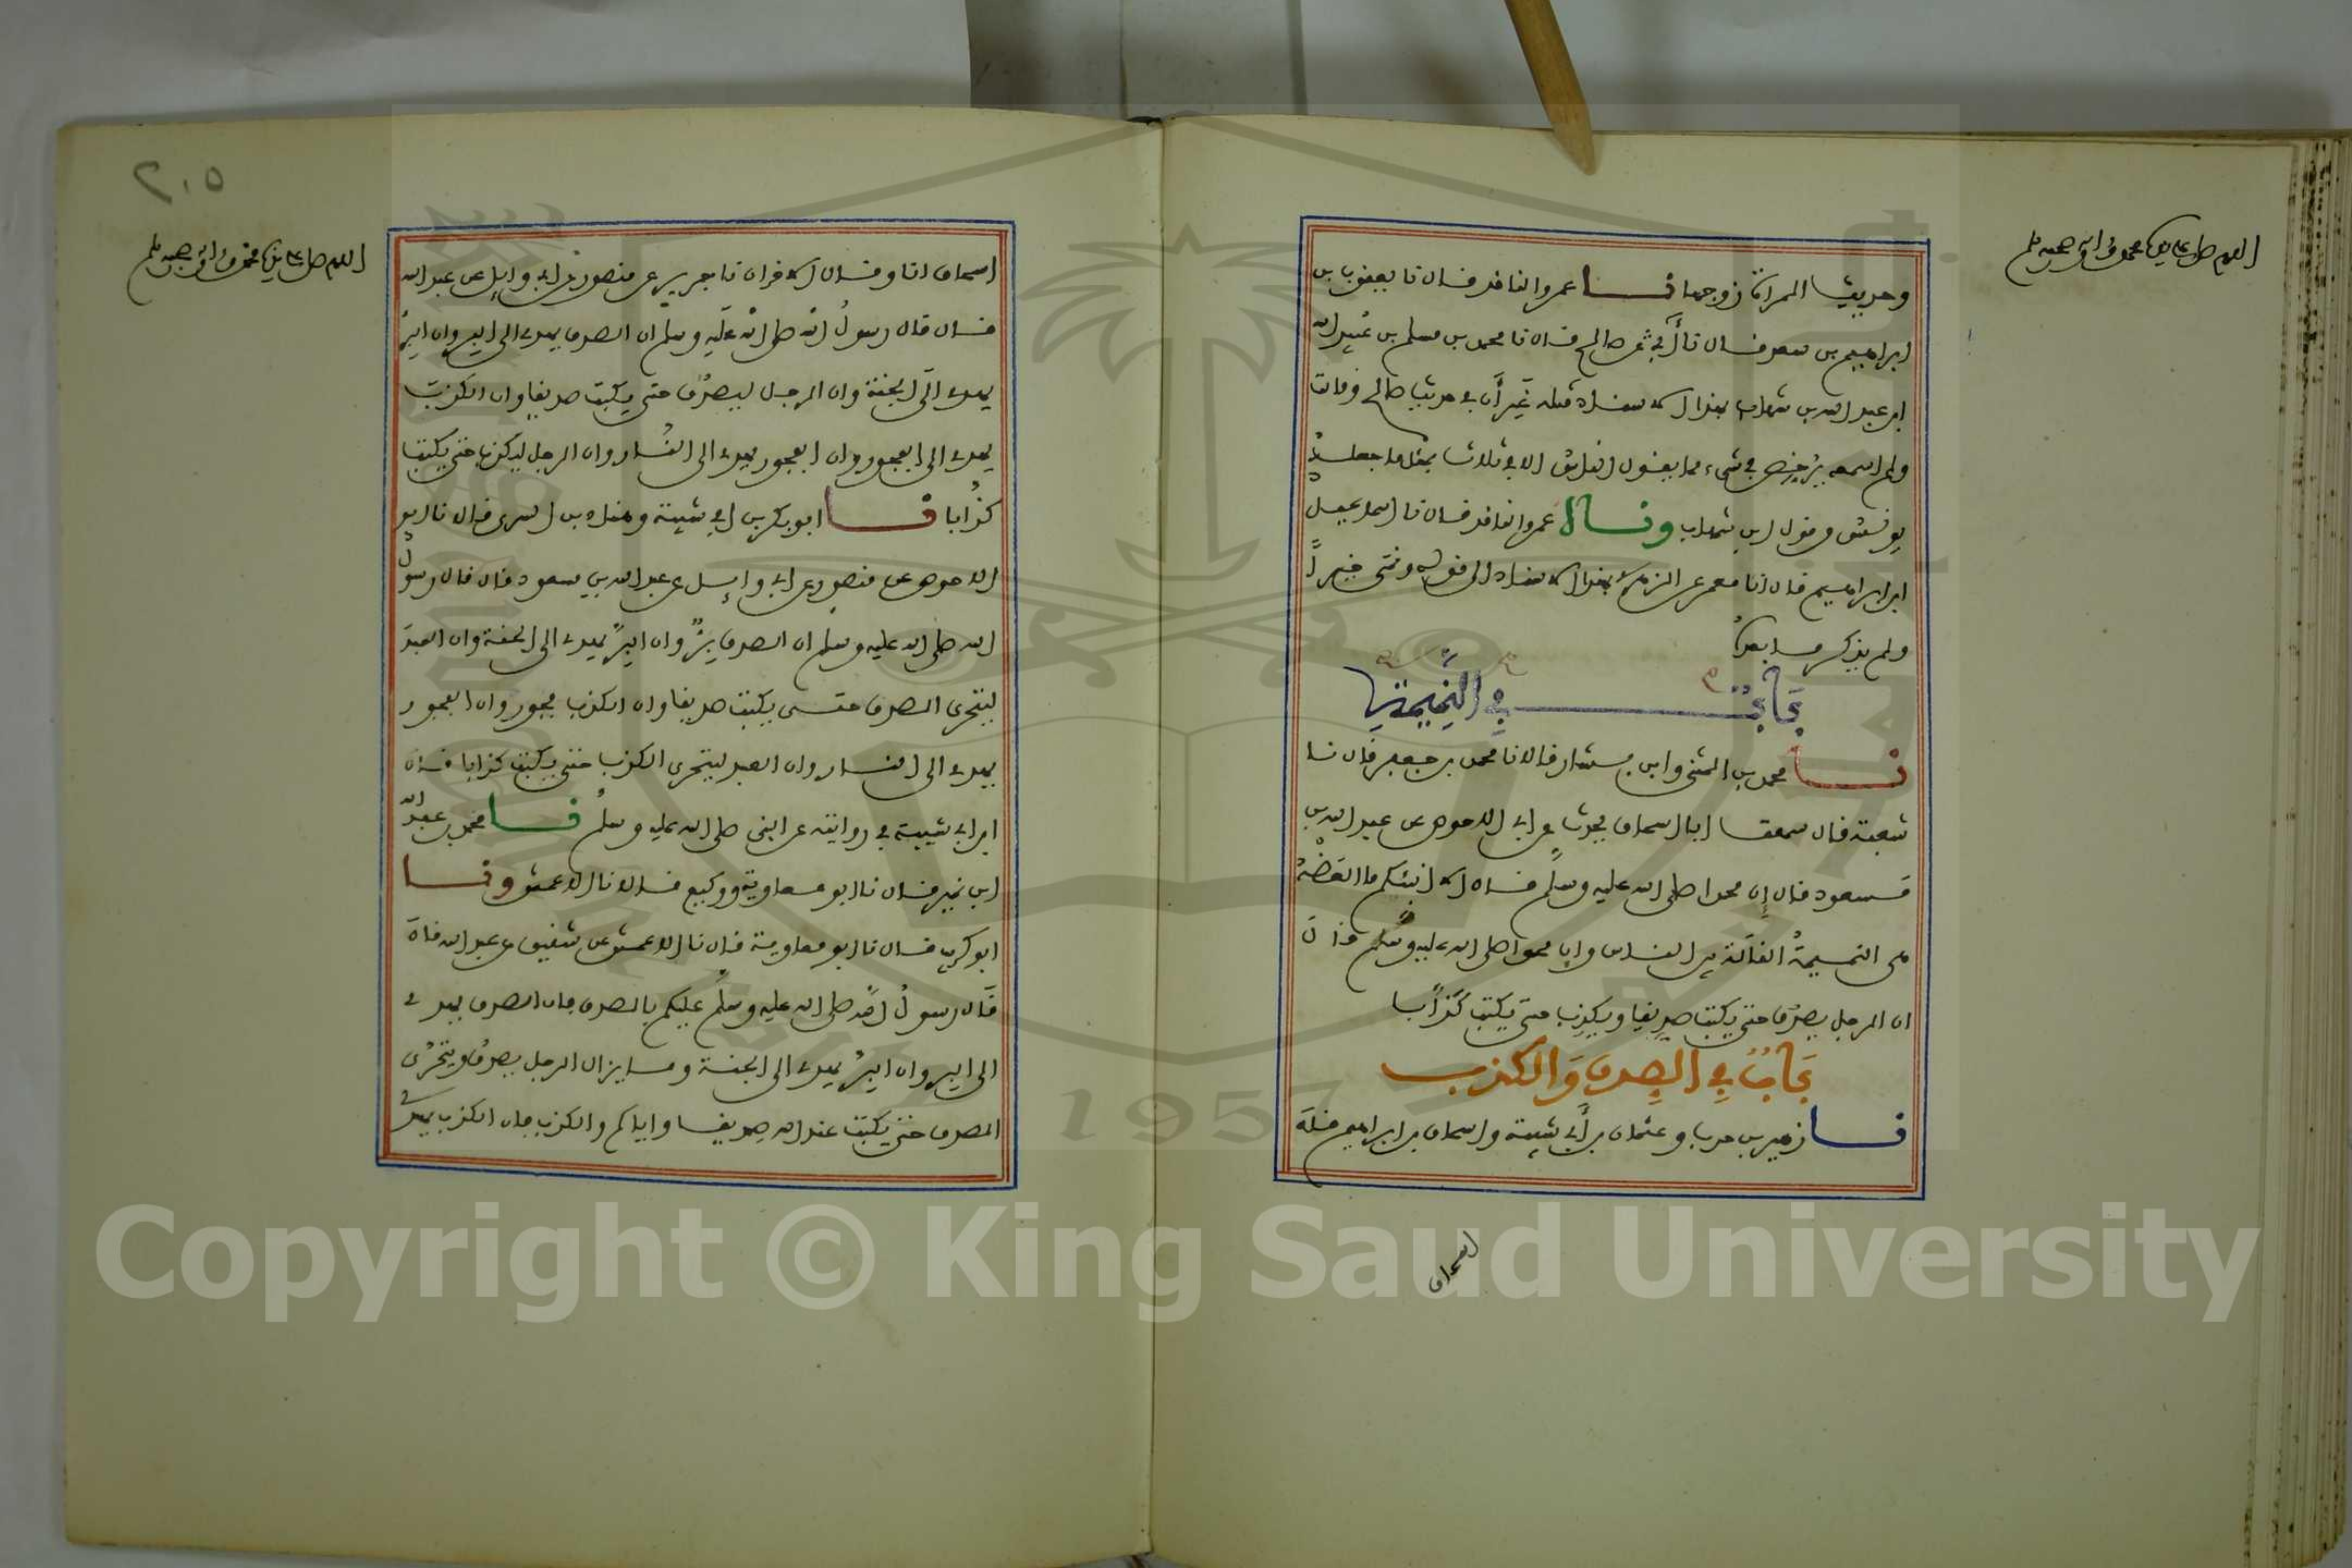 اللهم صل على سيدنا محمد وآله وصحبه وسلم
وحديث المرأة زوجها نا عمرو الناقد قال نا يعقوب بن
ابراهيم بن سعد قال نا أبي عن صالح قال نا محمد بن مسلم بن عبيد الله
ابن عبد الله بن شهاب بهذا الاسناد مثله غير أن في حديث صالح وقالت
ولم اسمعه يرخص في شيء مما يقول الناس الا في ثلاث بمثل ما جعله
يونس من قول ابن شهاب ونا عمرو الناقد قال نا اسماعيل
ابن ابراهيم قال انا معمر عن الزهري بهذا الاسناد الى قوله ونمى خيرا
ولم يذكر ما بعده
باب في النميمة
نا محمد بن المثنى وابن بشار قالا نا محمد بن جعفر قال نا
شعبة قال سمعت ابا اسحاق يحدث عن ابي الاحوص عن عبد الله بن
مسعود قال إن محمدا صلى الله عليه وسلم قال الا انبئكم ما العضه
هي النميمة القالة بين الناس وان محمدا صلى الله عليه وسلم قال
ان الرجل يصدق حتى يكتب صديقا ويكذب حتى يكتب كذابا
باب في الصدق والكذب
نا زهير بن حرب وعثمان بن أبي شيبة واسحاق بن ابراهيم قال
اسحاق
٢٠٥
اللهم صل على سيدنا محمد وآله وصحبه وسلم
اسحاق انا وقال الاخران نا جرير عن منصور عن ابي وايل عن عبد الله
قال قال رسول الله صلى الله عليه وسلم ان الصدق يهدي الى البر وان البر
يهدي الى الجنة وان الرجل ليصدق حتى يكتب صديقا وان الكذب
يهدي الى الفجور وان الفجور يهدي الى النار وان الرجل ليكذب حتى يكتب
كذابا نا ابو بكر بن ابي شيبة وهناد بن السري قالا نا ابو
الاحوص عن منصور عن ابي وايل عن عبد الله بن مسعود قال قال رسول
الله صلى الله عليه وسلم ان الصدق بر وان البر يهدي الى الجنة وان العبد
ليتحرى الصدق حتى يكتب صديقا وان الكذب فجور وان الفجور
يهدي الى النار وان العبد ليتحرى الكذب حتى يكتب كذابا قال
ابن ابي شيبة في روايته عن النبي صلى الله عليه وسلم نا محمد بن عبد الله
ابن نمير قال نا ابو معاوية ووكيع قالا نا الاعمش ونا
ابو كريب قال نا ابو معاوية قال نا الاعمش عن شقيق عن عبد الله قال
قال رسول الله صلى الله عليه وسلم عليكم بالصدق فان الصدق يهدي
الى البر وان البر يهدي الى الجنة وما يزال الرجل يصدق ويتحرى
الصدق حتى يكتب عند الله صديقا واياكم والكذب فان الكذب يهدي
Copyright © King Saud University
1957